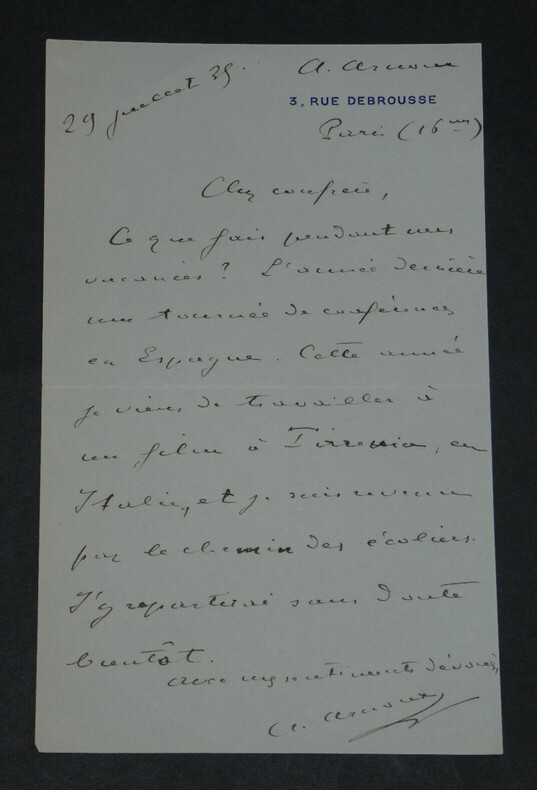 29 juillet 35.
A. Arnoux
3, RUE DEBROUSSE
Paris (16me)
Cher confrère,
Ce que fais pendant mes
vacances ? L'année dernière
une tournée de conférences
en Espagne. Cette année
je viens de travailler à
un film à Tirrenia, en
Italie, et je suis revenu
par le chemin des écoliers.
J'y repartirai sans doute
bientôt.
Avec mes sentiments dévoués,
A. Arnoux